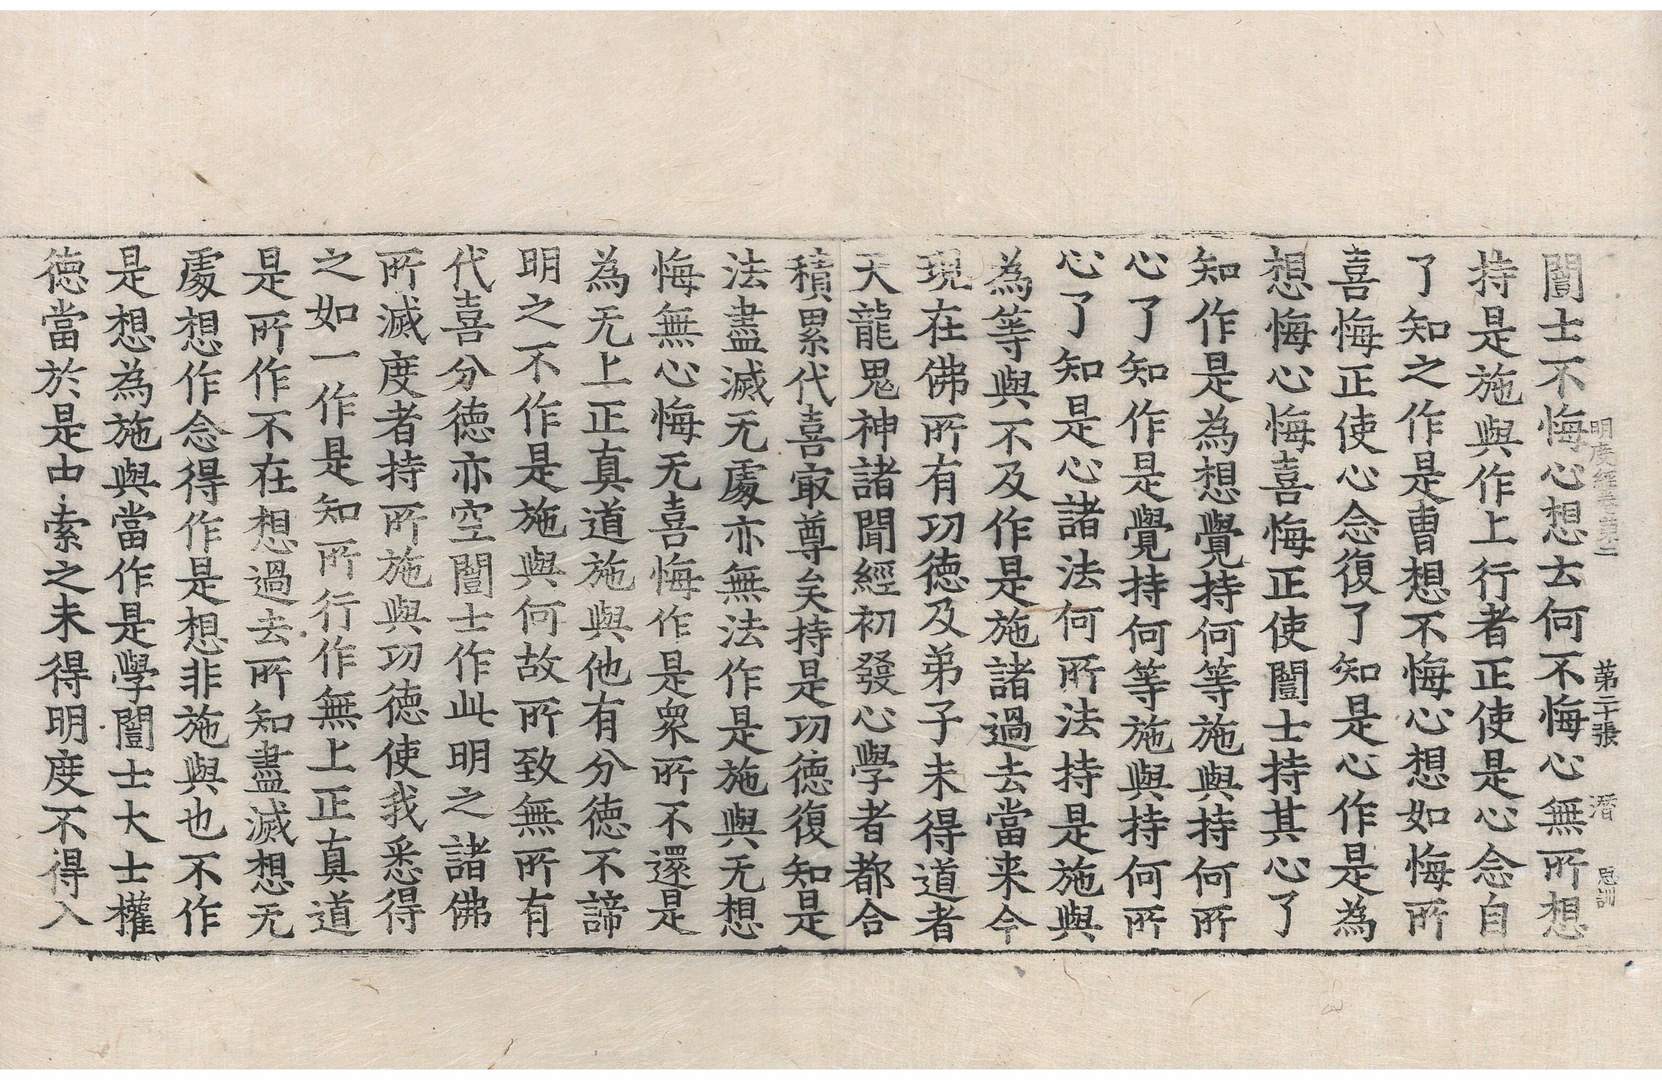 明度經卷第二　第二十張　潛　思訓
闓士不悔心想云何不悔心無所想
持是施與作上行者正使是心念自
了知之作是曺想不悔心想如悔所
喜悔正使心念念復了知是心作是為
想悔心悔喜悔正使闓士持其心了
知作是為想覺持何等施與持何所
心了知作是覺持何等施與持何所
心了知是心諸法何所法持是施與
為等與不及作是施諸過去當来今
現在佛所有㓛德及弟子未得道者
天龍鬼神諸聞經初發心學者都合
積累代喜㝡尊矣持是㓛德復知是
法盡滅无處亦無法作是施與无想
悔無心悔无喜悔作是衆所不還是
為无上正真道施與他有分德不諦
明之不作是施與何故所致無所有
代喜分德亦空闓士作此明之諸佛
所滅度者持所施與㓛德使我悉得
之如一作是知所行作無上正真道
是所作不在想過去所知盡滅想无
處想作念得作是想非施與也不作
是想為施與當作是學闓士大士權
德當於是中索之未得明度不得入